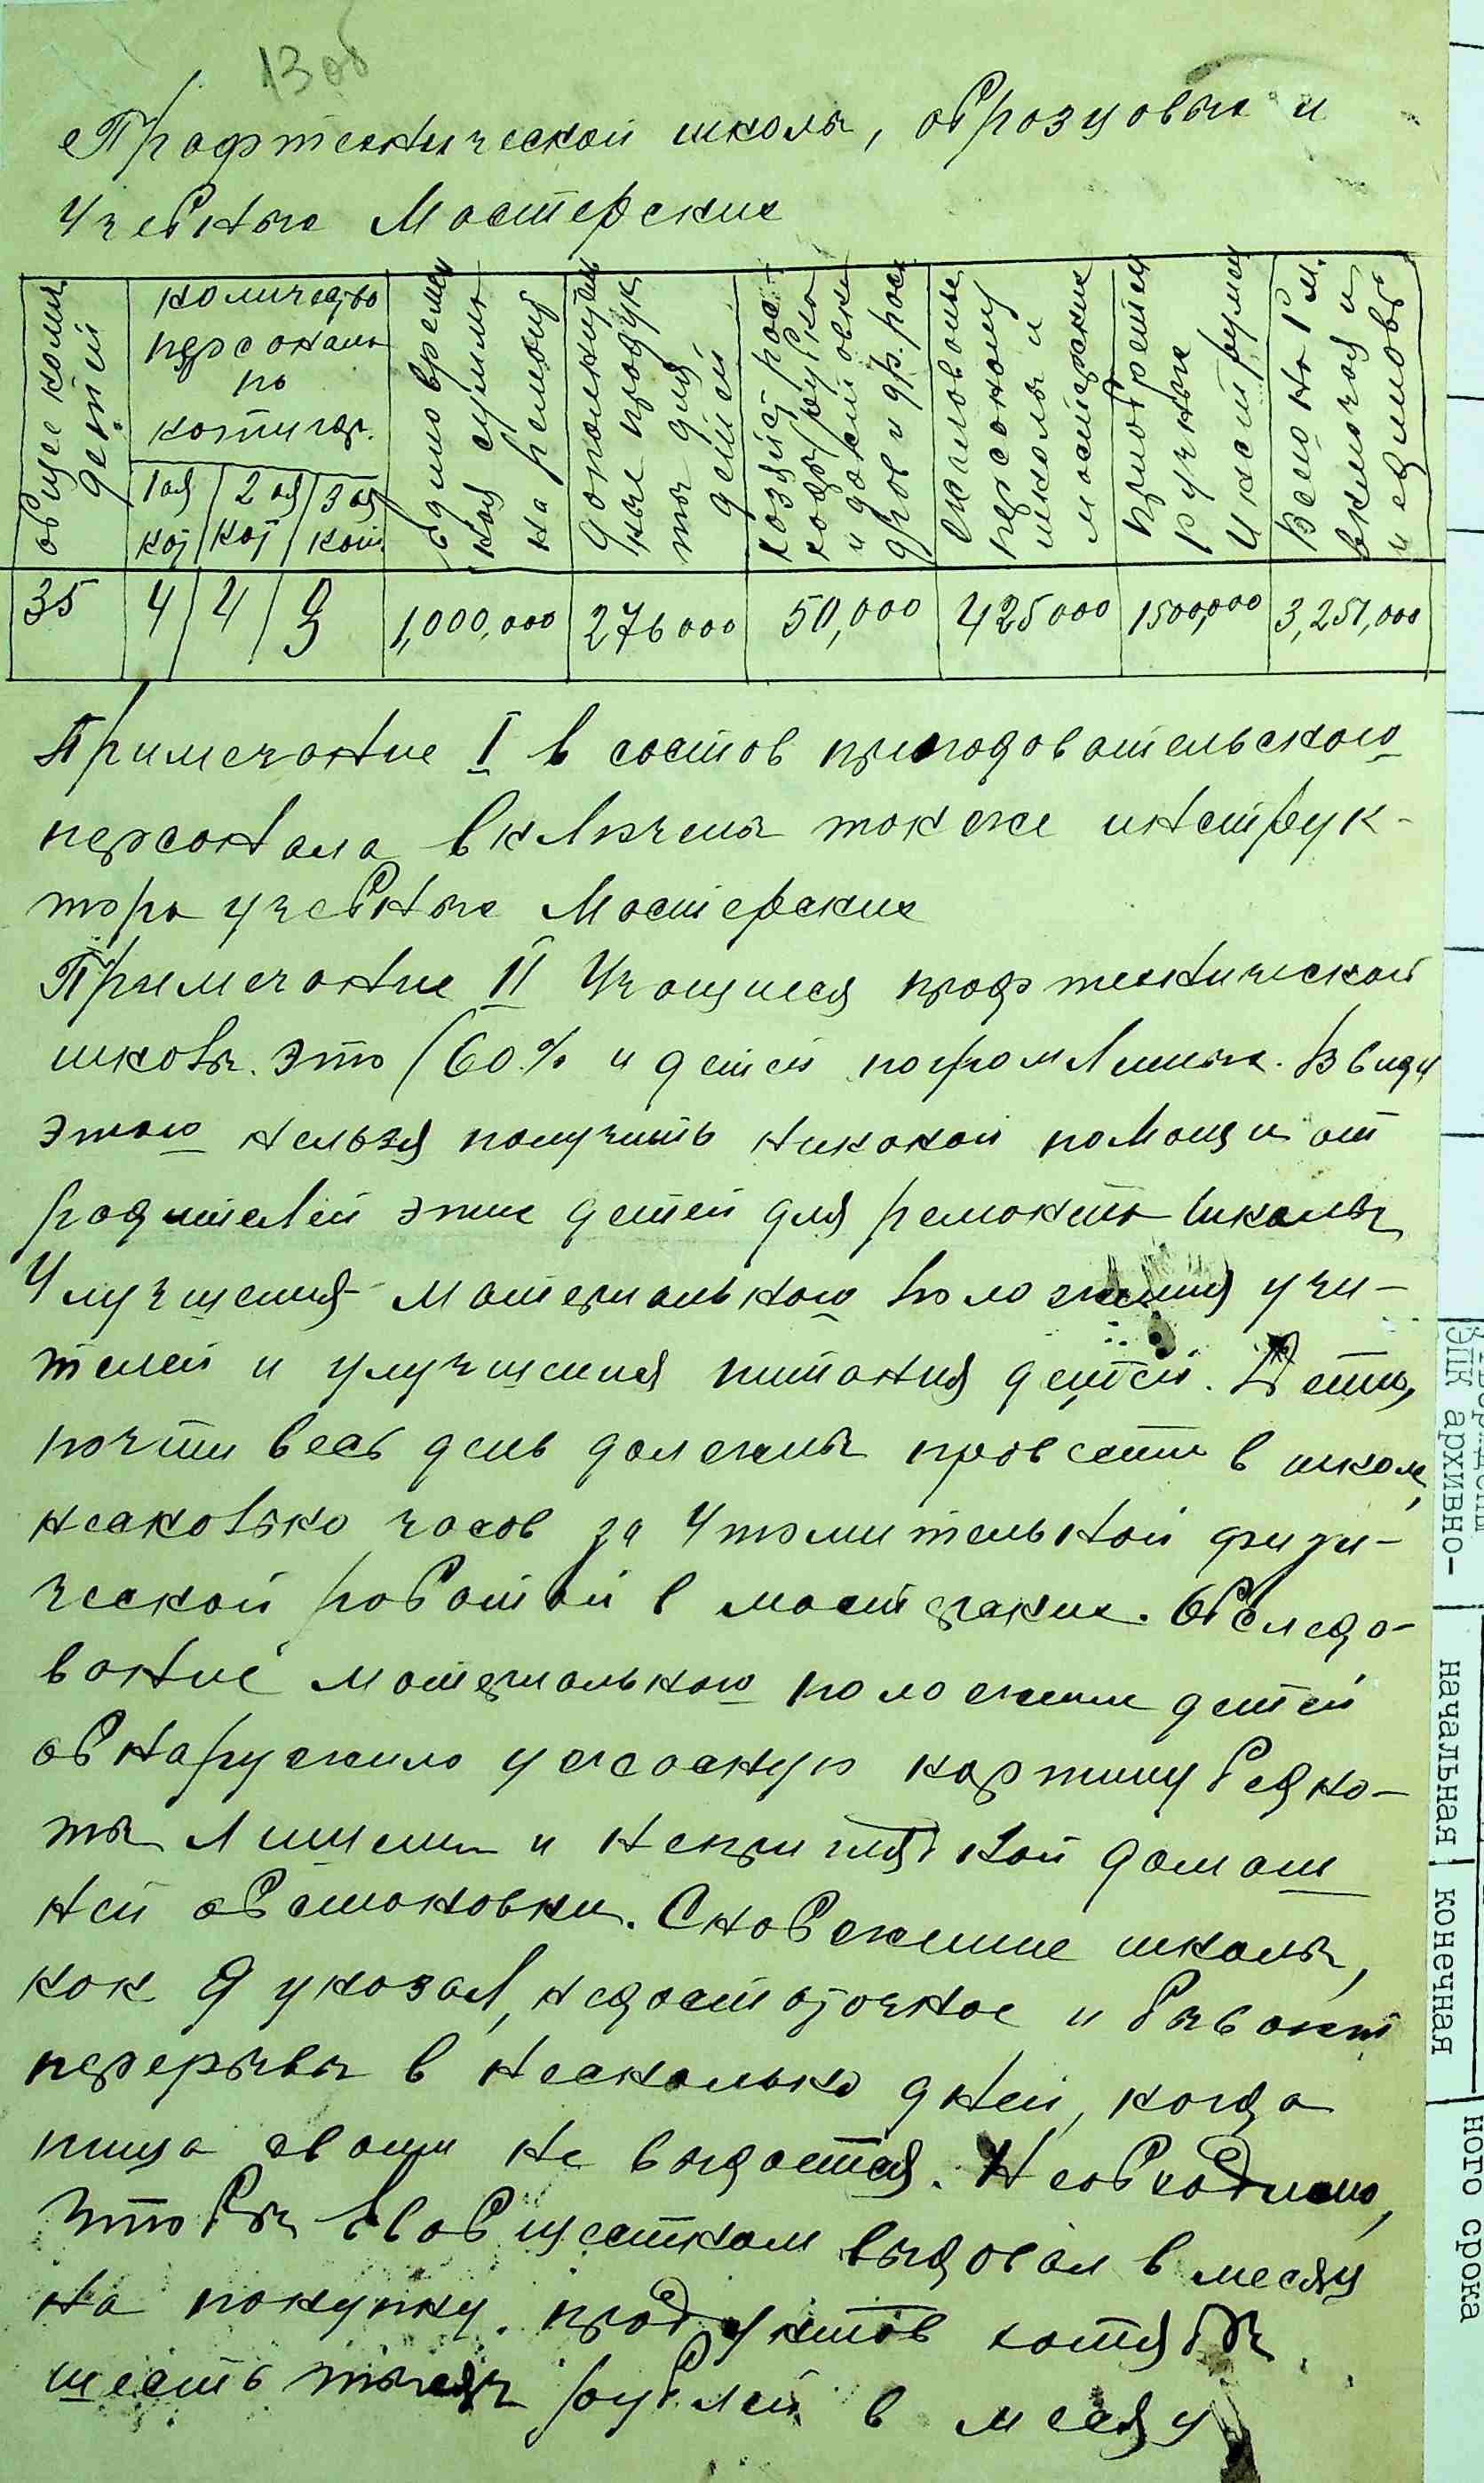 13 об
Профтехнической школы, образцовых и
Учебных Мастерских
общее колич. детей
количество персонала по категор.
1 ая кат | 2 ая кат | 3 ая кат.
Единовременная сумма на ремонт
дополнительные продукты для детей
хозяйст. рас-
и доставки дров и др. расх.
жалование персоналу школы и мастерских
приобретен ручных инструмен
Всего на 1 м. включая и единовр
35 | 4 | 4 | 9 | 1,000,000 | 276000 | 50,000 | 425000 | 1500,000 | 3,251,000
Примечание I в состав преподавательского
персонала включены также инструк-
тора учебных Мастерских
Примечание II Учащиеся профтехнической
школы. это (60% и детей погромленных. Ввиду
этого нельзя получить никакой помощи от
родителей этих детей для ремонта школы
Улучшения материального положения учи-
телей и улучшения питания детей. Дети,
почти весь день должны провести в школе,
несколько часов за Утомительной физи-
ческой работой в мастерских. Обследо-
вание материального положения детей
обнаружило ужасную картину бедно-
ты лишений и неприглядной домаш
ней обстановки. Снабжение школы,
как Я указал, недостаточное и бывают
перерывы в несколько дней, когда
пища совсем не выдается. Необходимо,
чтобы Евобщестком выдавал в месяц
на покупку продуктов хотя бы
шесть тысяч рублей в месяц
ЭПК архивно-
начальная | конечная
ного срока